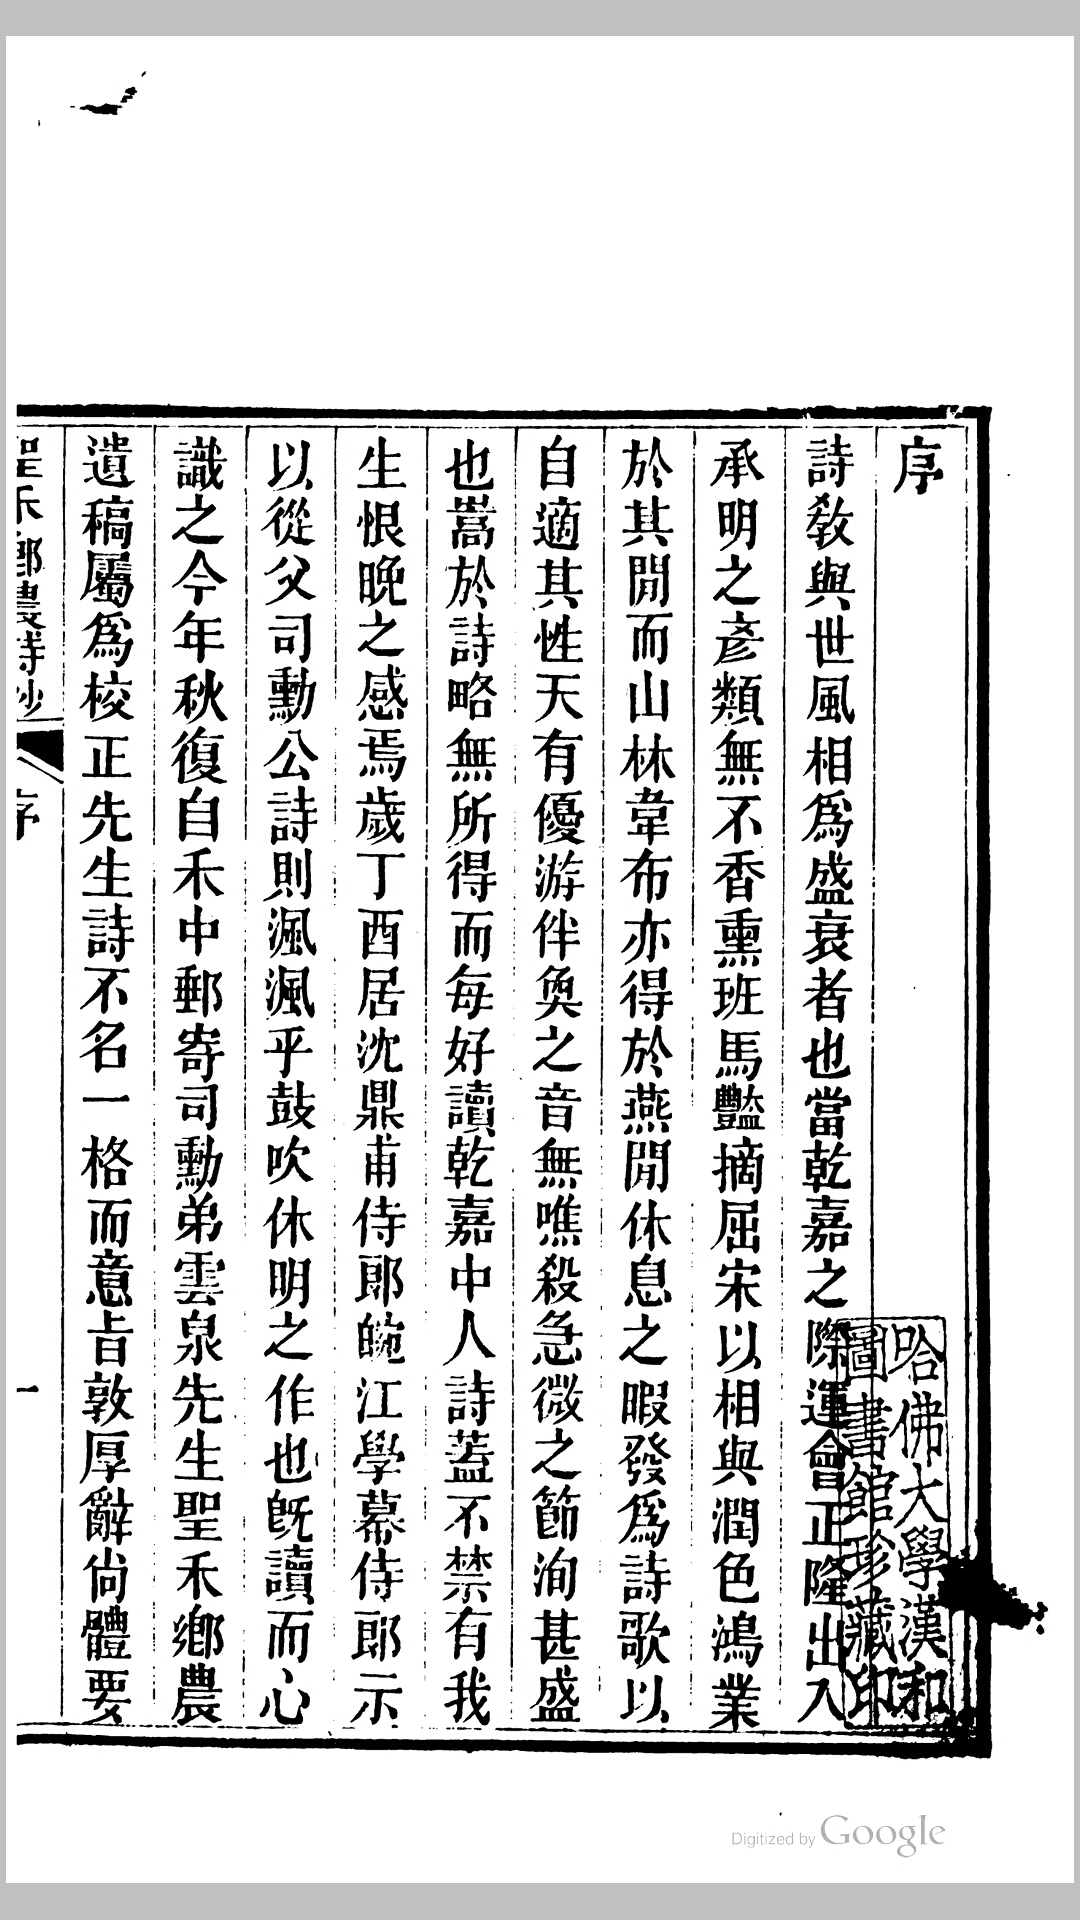 序
詩敎與世風相爲盛衰者也當乾嘉之際運會正隆出入
承明之彥類無不香熏班馬豔摘屈宋以相與潤色鴻業
於其閒而山林韋布亦得於燕閒休息之暇發爲詩歌以
自適其性天有優游伴奐之音無噍殺急微之節洵甚盛
也嵩於詩略無所得而每好讀乾嘉中人詩蓋不禁有我
生恨晚之感焉歲丁酉居沈鼎甫侍郎皖江學幕侍郎示
以從父司勳公詩則渢渢乎鼓吹休明之作也旣讀而心
識之今年秋復自禾中郵寄司勳弟雲泉先生聖禾鄉農
遺稿屬爲校正先生詩不名一格而意旨敦厚辭尙體要
聖禾鄉農詩鈔
序
一
哈佛大學漢和
圖書館珍藏印
Digitized by Google